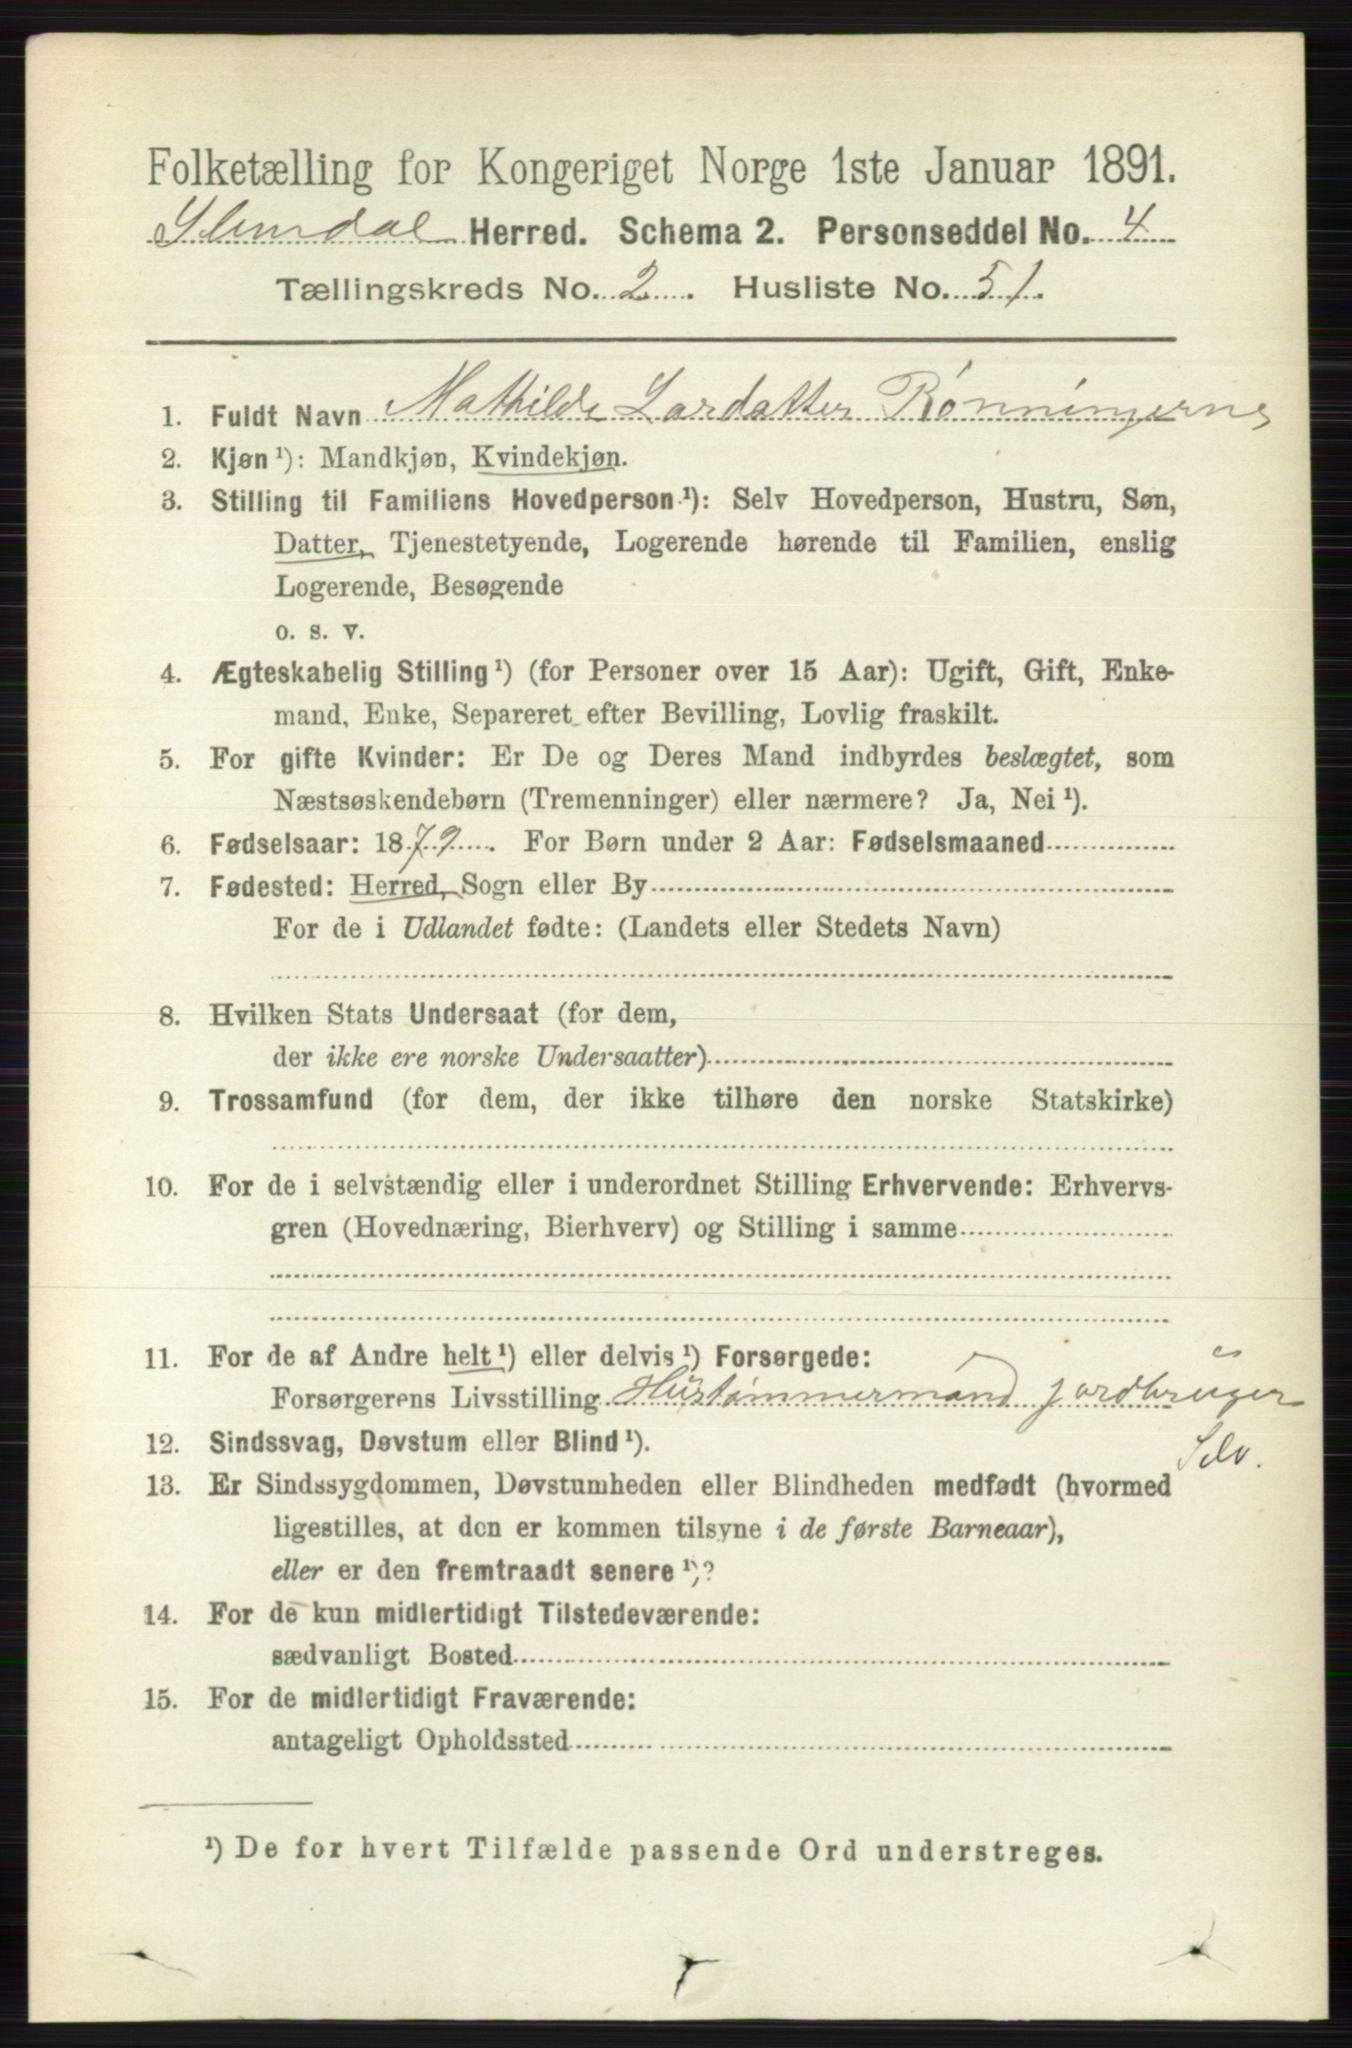 Folketælling for Kongeriget Norge 1ste Januar 1891.
Slemdal Herred. Schema 2. Personseddel No. 4
Tællingskreds No. 2. Husliste No. 51.
1. Fuldt Navn Mathilde Larsdatter Rønningerne
2. Kjøn ¹): Mandkjøn, Kvindekjøn.
3. Stilling til Familiens Hovedperson ¹): Selv Hovedperson, Hustru, Søn,
Datter, Tjenestetyende, Logerende hørende til Familien, enslig
Logerende, Besøgende
o. s. v.
4. Ægteskabelig Stilling ¹) (for Personer over 15 Aar): Ugift, Gift, Enke-
mand, Enke, Separeret efter Bevilling, Lovlig fraskilt.
5. For gifte Kvinder: Er De og Deres Mand indbyrdes beslægtet, som
Næstsøskendebørn (Tremenninger) eller nærmere? Ja, Nei ¹).
6. Fødselsaar: 1879. For Børn under 2 Aar: Fødselsmaaned
7. Fødested: Herred, Sogn eller By
For de i Udlandet fødte: (Landets eller Stedets Navn)
8. Hvilken Stats Undersaat (for dem,
der ikke ere norske Undersaatter)
9. Trossamfund (for dem, der ikke tilhøre den norske Statskirke)
10. For de i selvstændig eller i underordnet Stilling Erhvervende: Erhvervs-
gren (Hovednæring, Bierhverv) og Stilling i samme
11. For de af Andre helt ¹) eller delvis ¹) Forsørgede:
Forsørgerens Livsstilling Hustømmermand jordbruger
Selv.
12. Sindssvag, Døvstum eller Blind ¹).
13. Er Sindssygdommen, Døvstumheden eller Blindheden medfødt (hvormed
ligestilles, at den er kommen tilsyne i de første Barneaar),
eller er den fremtraadt senere ¹)?
14. For de kun midlertidigt Tilstedeværende:
sædvanligt Bosted
15. For de midlertidigt Fraværende:
antageligt Opholdssted
¹) De for hvert Tilfælde passende Ord understreges.